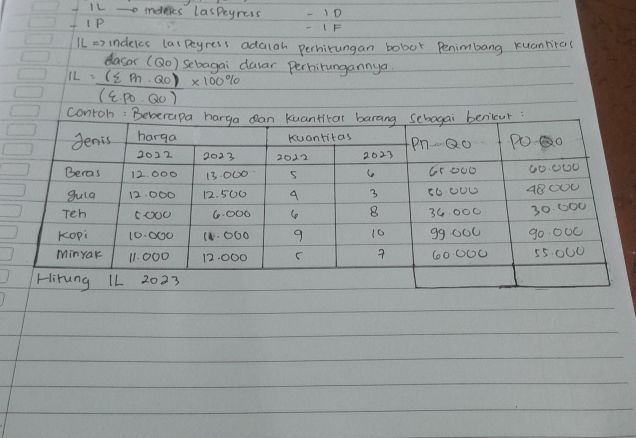 - IL → indeks Laspeyress - ID
- IP - IF
IL => indeks laspeyress adalah perhitungan bobot Penimbang kuantitas
dasar (Qo) sebagai dasar Perhitungannya.
IL = (Σ Pn . Qo) x 100%
(Σ Po . Qo)
Contoh : Beberapa harga dan kuantitas barang sebagai berikut :
Jenis harga kuantitas Pn - Qo Po Qo
2022 2023 2022 2023
Beras 12.000 13.000 5 6 65.000 60.000
gula 12.000 12.500 4 3 50.000 48000
Teh 5.000 6.000 6 8 36.000 30.000
Kopi 10.000 11.000 9 10 99.000 90.000
Minyak 11.000 12.000 5 7 60.000 55.000
Hitung IL 2023